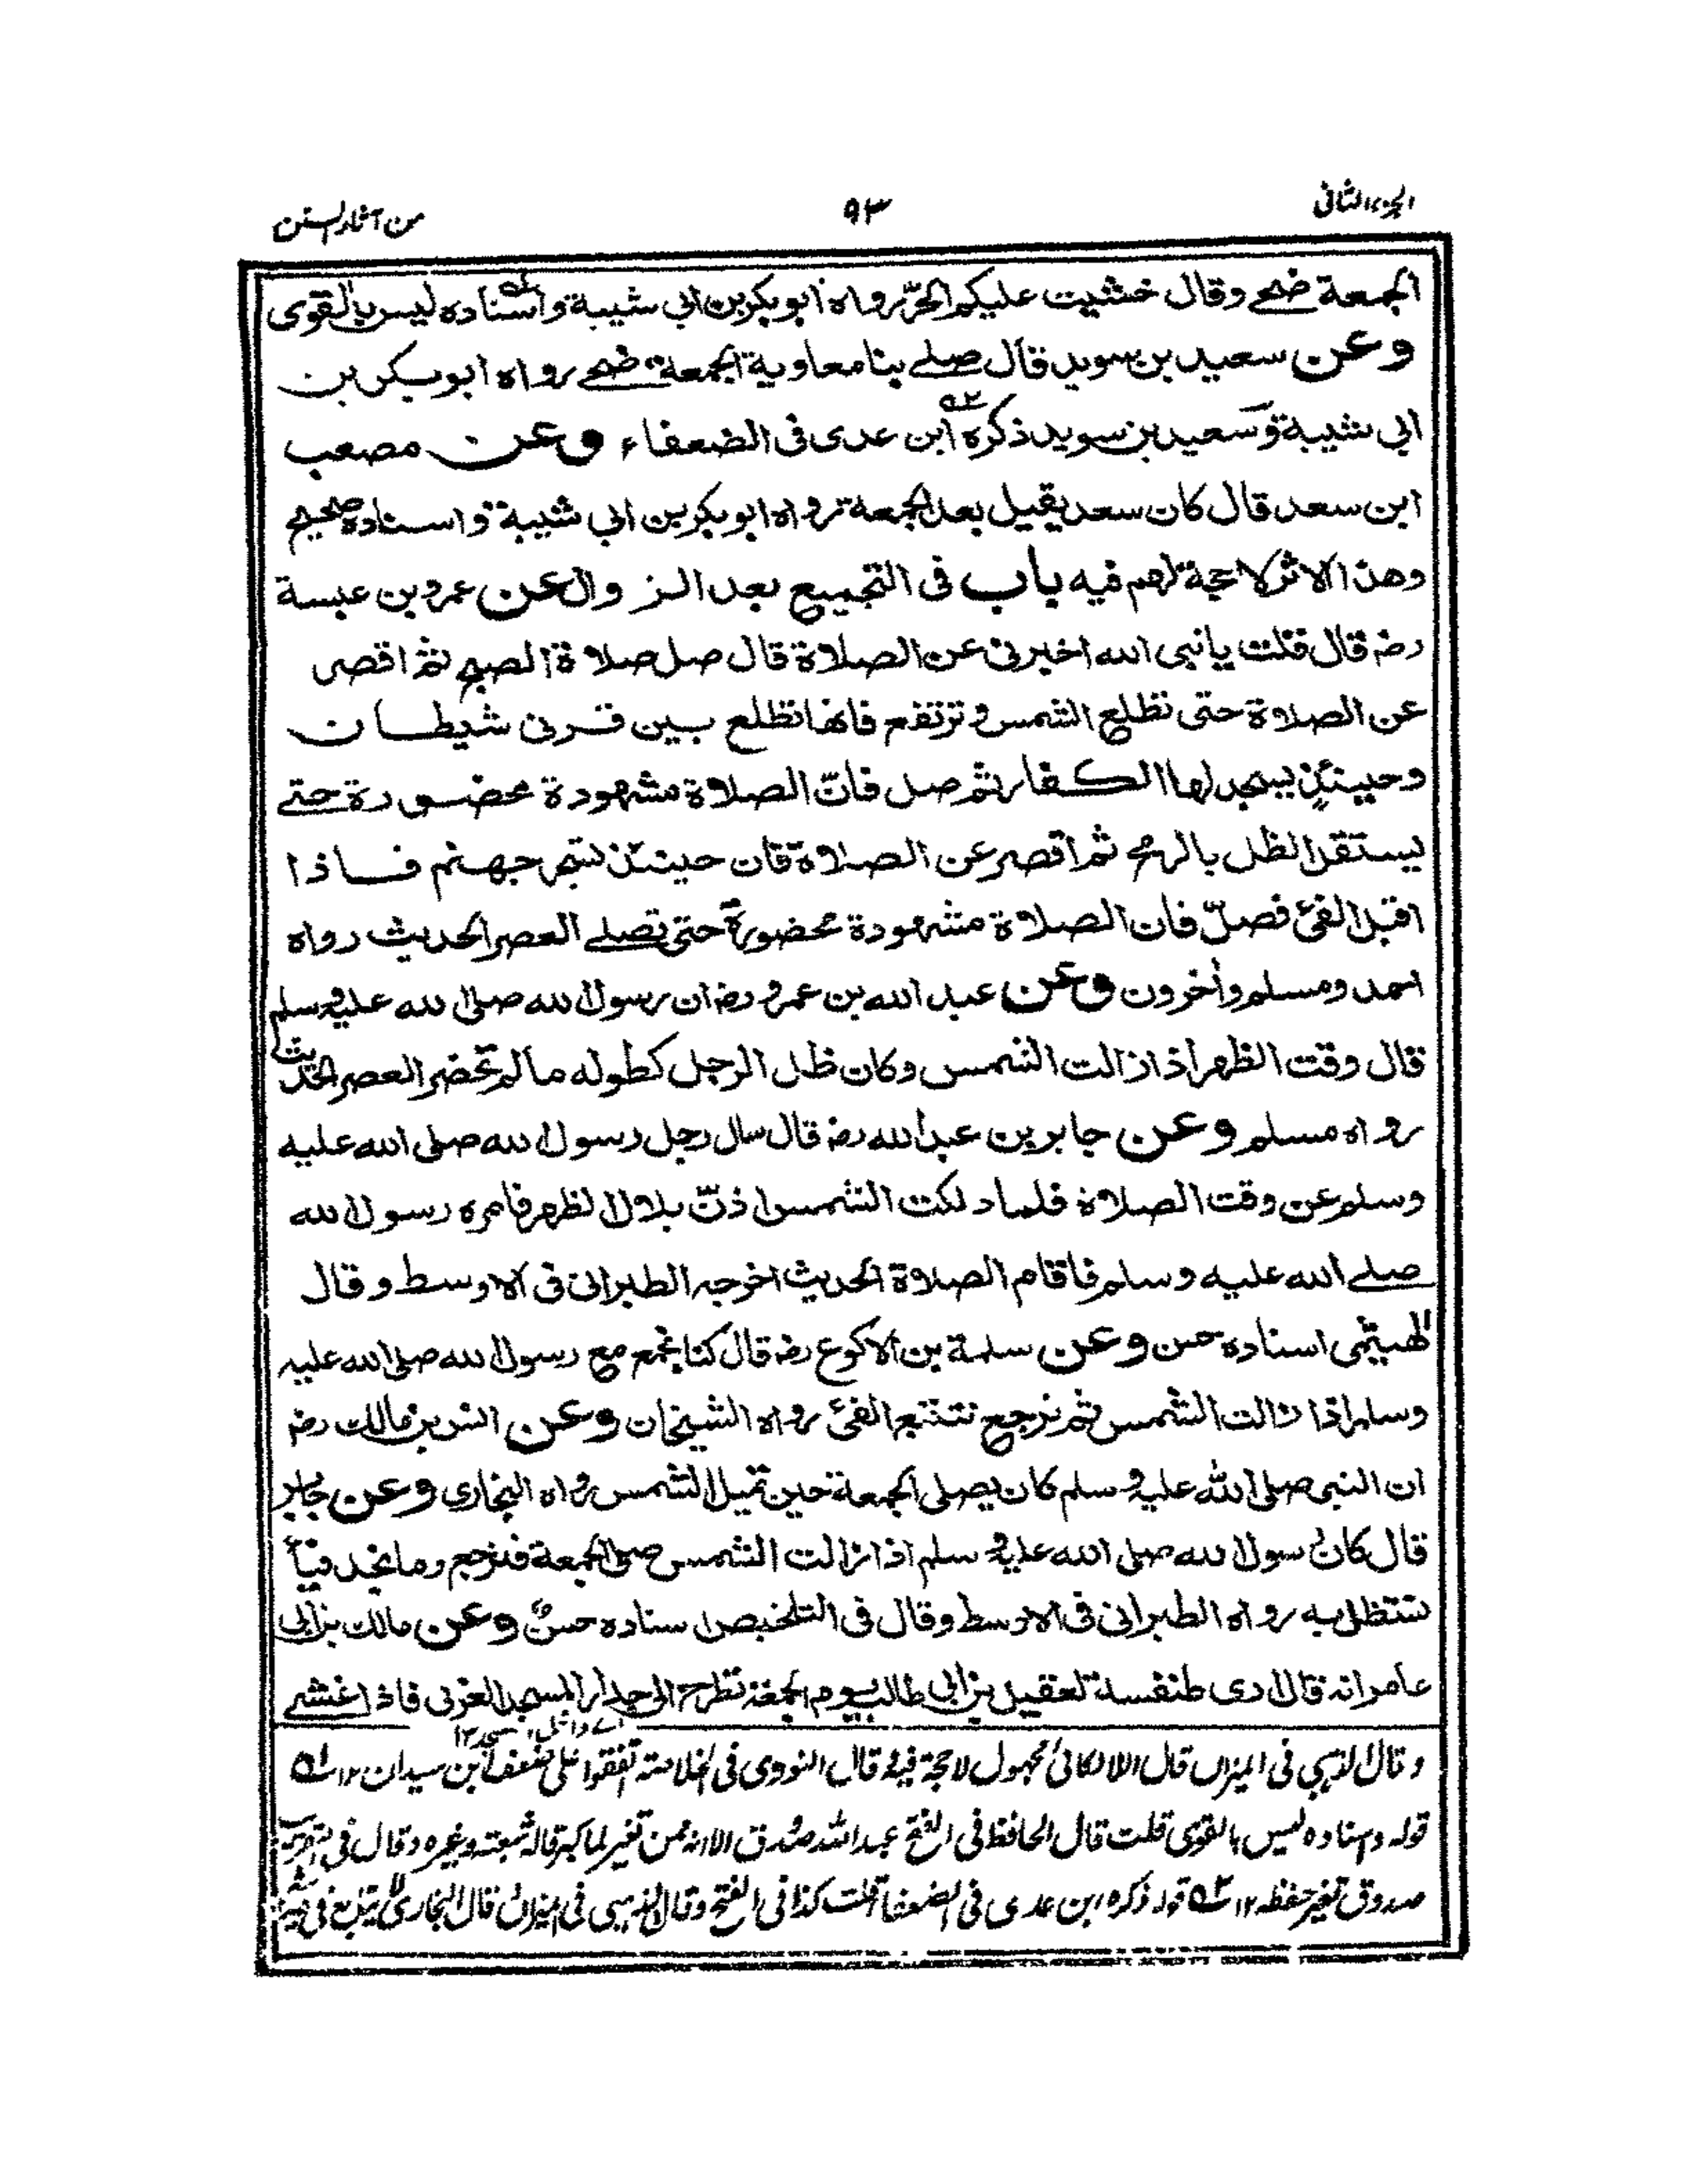 الجزء الثانی
۹۳
من آثار السنن
الجمعة ضحے وقال خشیت علیکم الحرّ رواہ ابوبکر بن ابی شیبة واسنادہ لیس بالقوی
وعن سعید بن سوید قال صلے بنا معاویة الجمعة ضحے رواہ ابوبکر بن
ابی شیبة وسعید بن سوید ذکرہ ابن عدی فی الضعفاء وعن مصعب
ابن سعد قال کان سعد یقیل بعد الجمعة رواہ ابوبکر بن ابی شیبة واسنادہ صحیح
وھذا الاثر لا حجة لھم فیه باب فی التجمیع بعد الزوال عن عمرو بن عبسة
رضـ قال قلت یا نبی الله اخبرنی عن الصلاة قال صل صلاة الصبح ثم اقصر
عن الصلاة حتی تطلع الشمس وترتفع فانھا تطلع بین قرنی شیطان
وحینئذٍ یسجد لھا الکفار ثم صل فانّ الصلاة مشھودة محضورة حتے
یستقل الظل بالرمح ثم اقصر عن الصلاة فان حینئذ تسجر جھنم فاذا
اقبل الفئ فصلّ فان الصلاة مشھودة محضورة حتی تصلے العصر الحدیث رواہ
احمد ومسلم وأخرون وعن عبد الله بن عمرو رضـ ان رسول الله صلی الله علیه وسلم
قال وقت الظھر اذا زالت الشمس وکان ظل الرجل کطوله مالم تحضر العصر الحدیث
رواہ مسلم وعن جابر بن عبد الله رضـ قال سال رجل رسول الله صلی الله علیه
وسلم عن وقت الصلاة فلما دلکت الشمس اذنّ بلال الظھر فامرہ رسول الله
صلے الله علیه وسلم فاقام الصلاة الحدیث اخرجه الطبرانی فی الاوسط وقال
الھیثمی اسنادہ حسن وعن سلمة بن الاکوع رضـ قال کنا نجمع مع رسول الله صلی الله علیه
وسلم اذا زالت الشمس ثم نرجع نتتبع الفئ رواہ الشیخان وعن انس بن مالك رضـ
ان النبی صلی الله علیه وسلم کان یصلی الجمعة حین تمیل الشمس رواہ البخاری وعن جابر
قال کان رسول الله صلی الله علیه وسلم اذا زالت الشمس صلی الجمعة فنرجع وما نجد فیأ
نستظل به رواہ الطبرانی فی الاوسط وقال فی التلخیص اسنادہ حسنٌ وعن مالك بن ابی
عامر انه قال اری طنفسة لعقیل بن ابی طالب یوم الجمعة تطرح الی جدار المسجد الغربی فاذا غشے
اے داخل المسجد ۱۲
وقال الذہبی فی المیزان قال اللالکائی مجہول لا حجة فیه قال النووی فی الخلاصة اتفقوا علی ضعف ابن سیدان ۱۲ ؎۱
قوله واسناده لیس بالقوی قلت قال الحافظ فی الفتح عبد اللہ صدوق الا انه ممن تغیر لما کبر قاله شعبة وغیره وقال فی التقریب
صدوق تغیر حفظه ۱۲ ؎۲ قوله ذکره ابن عدی فی الضعفاء قلت کذا فی الفتح وقال الذہبی فی المیزان قال البخاری لا یتابع فی حدیثه